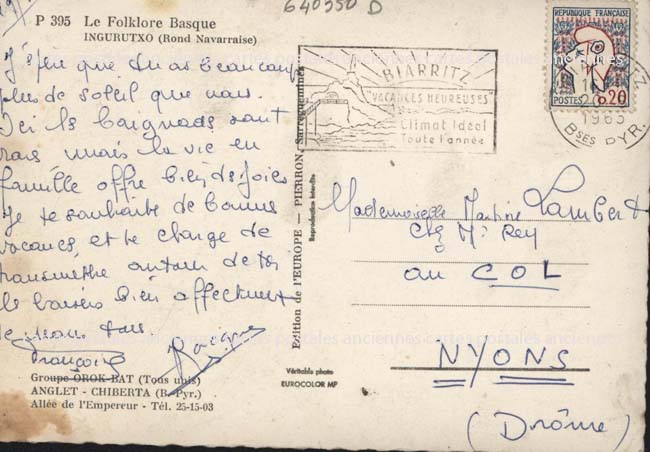 640350 D
P 395 Le Folklore Basque
INGURUTXO (Rond Navarraise)
que tu as beaucoup
plus de soleil que nous.
Ici les baignades sont
mais la vie en
famille offre bien des joies
Je te souhaite de bonnes
vacances, et te charge de
transmettre autour de toi
baisers bien affectueux
de nous tous.
François Jacques
Groupe OROK-BAT (Tous unis)
ANGLET - CHIBERTA (B. Pyr.)
Allée de l'Empereur - Tél. 25-15-03
Edition de l'EUROPE — PIERRON, Sarreguemines
Reproduction interdite
Véritable photo
EUROCOLOR MP
BIARRITZ
"VACANCES HEUREUSES"
Climat Idéal
Toute l'année
REPUBLIQUE FRANÇAISE
POSTES 0,20
1963
Bses PYR.
Mademoiselle Martine Lambert
Chez Mr Rey
au COL
NYONS
(Drôme)
cartes postales anciennes